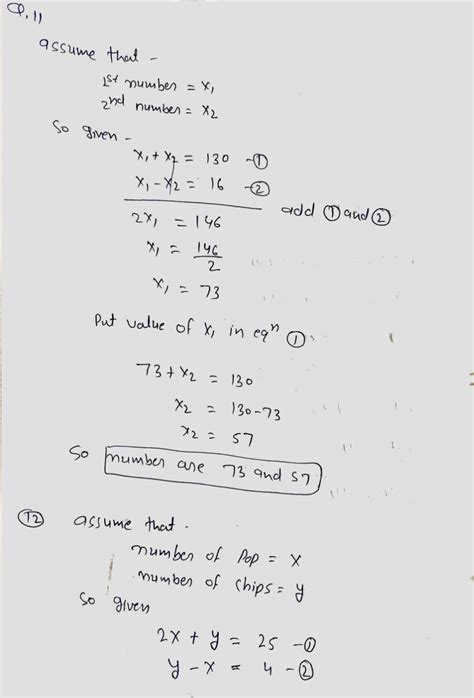 Q.11
assume that -
1st number = x₁
2nd number = x₂
So given -
x₁ + x₂ = 130 -①
x₁ - x₂ = 16 -②
add ① and ②
2x₁ = 146
x₁ = 146/2
x₁ = 73
Put value of x₁ in eqⁿ ①
73 + x₂ = 130
x₂ = 130-73
x₂ = 57
So number are 73 and 57
12 assume that -
number of Pop = x
number of Chips = y
So given
2x + y = 25 -①
y - x = 4 -②